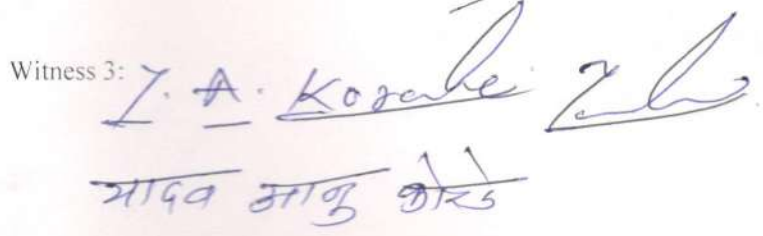 Witness 3: Y. A. Korake
यादव आनु कोरे